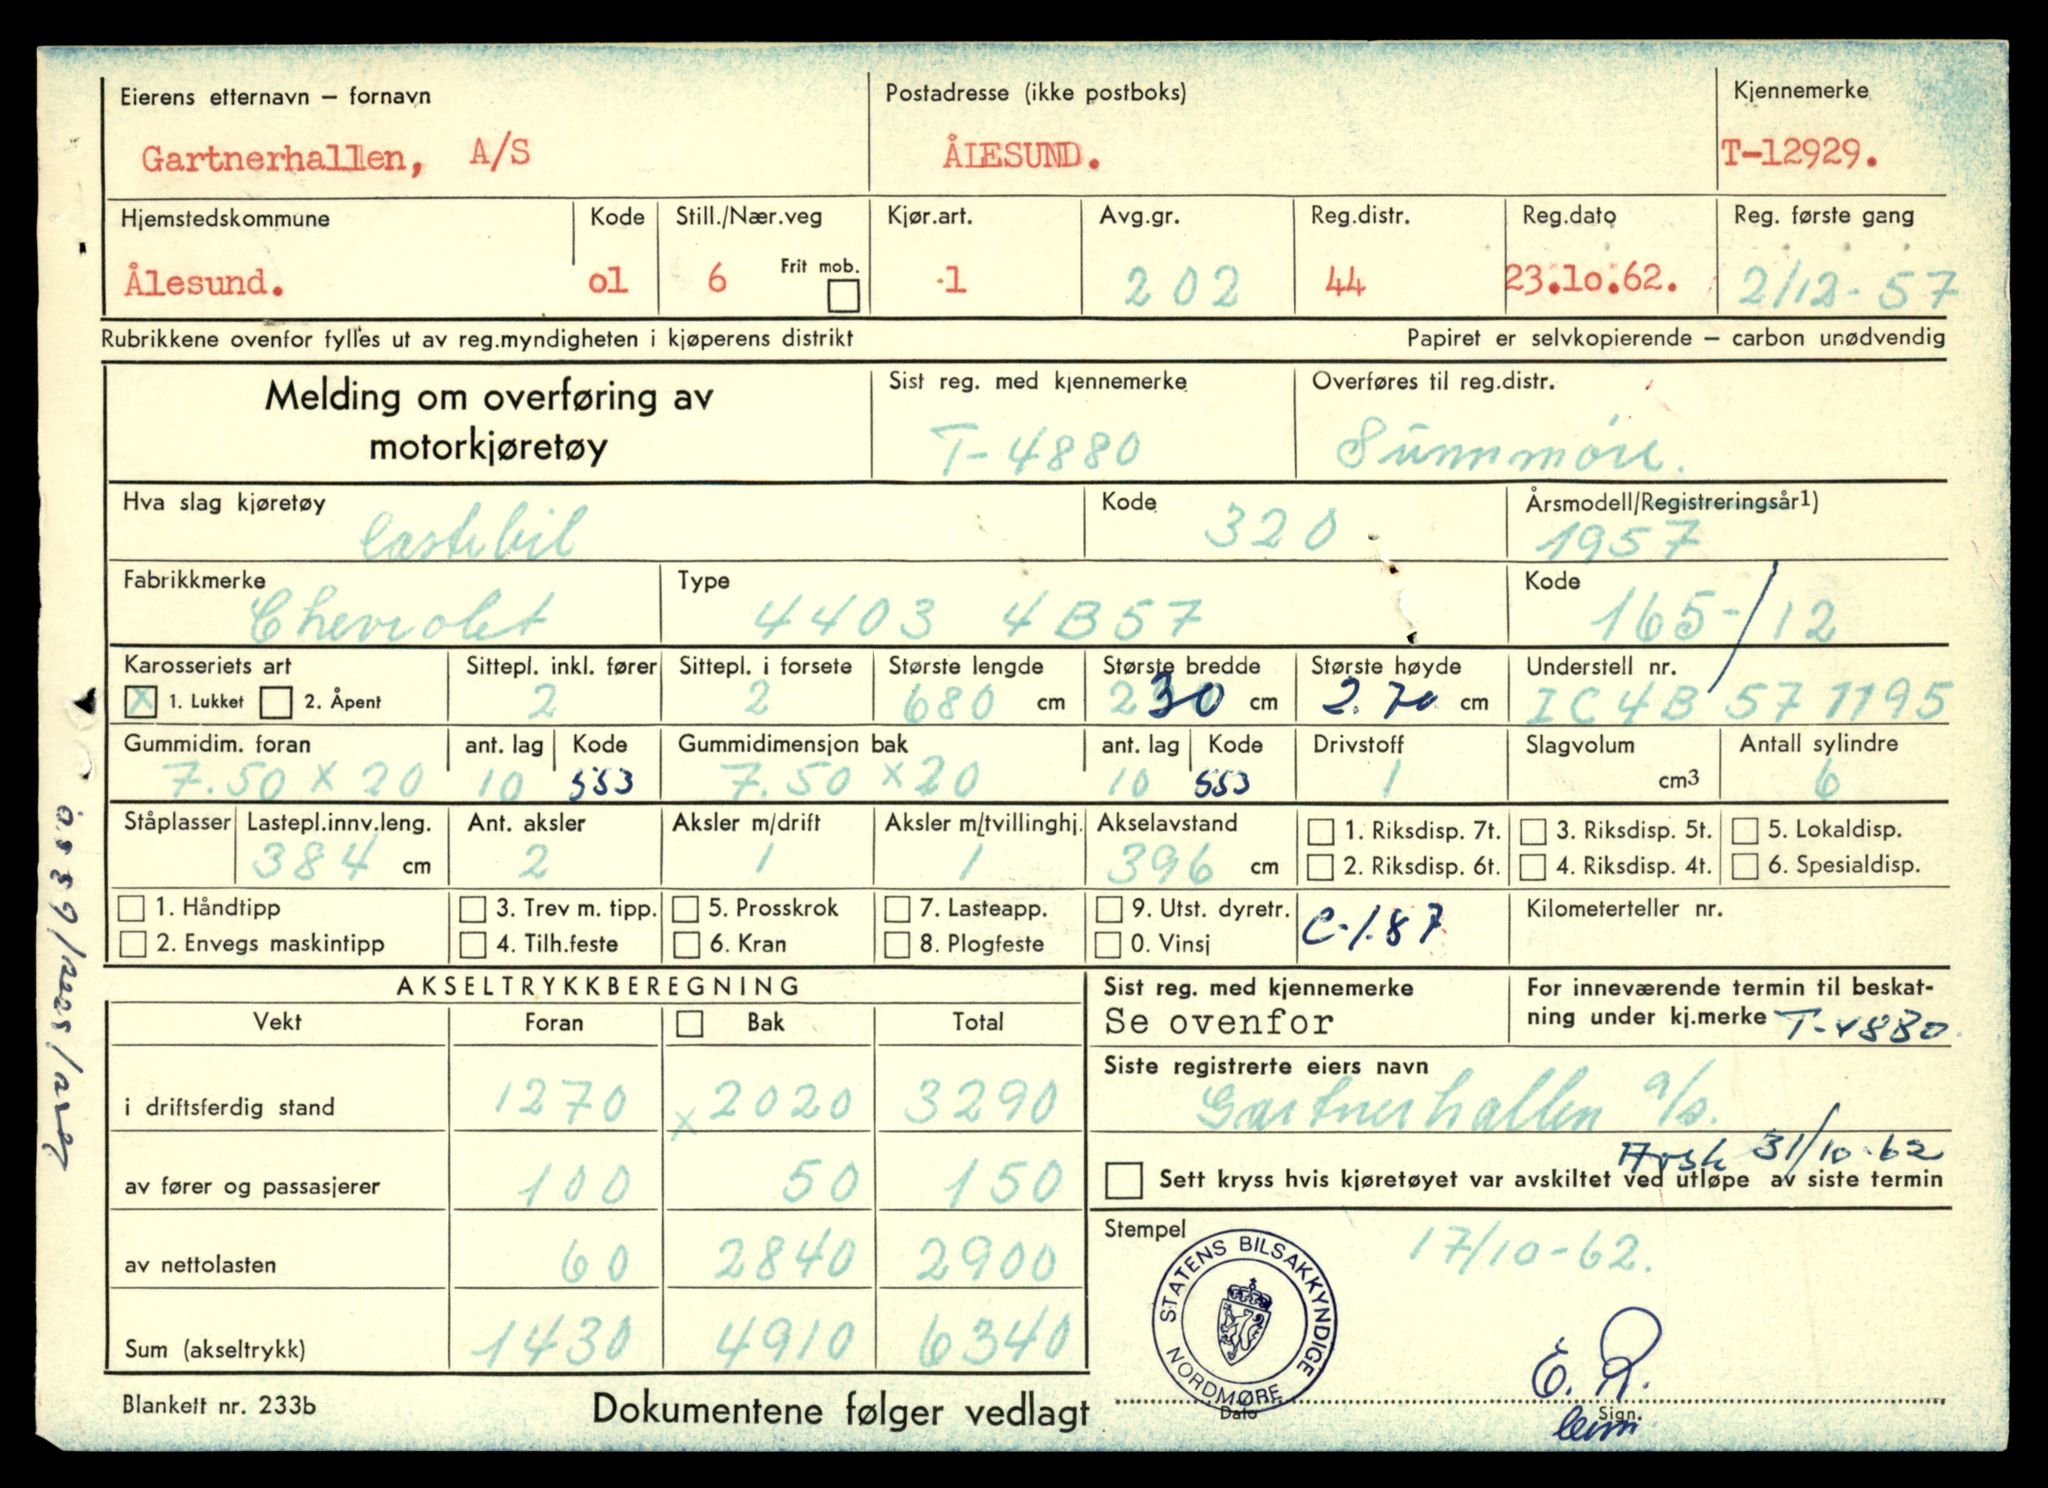 Eierens etternavn – fornavn
Postadresse (ikke postboks)
Kjennemerke
Gartnerhallen, A/S
ÅLESUND.
T-12929.
Hjemstedskommune
Kode
Still./Nær.veg
Kjør.art.
Avg.gr.
Reg.distr.
Reg.dato
Reg. første gang
Frit mob.
Ålesund.
o1
6
1
202
44
23.1o.62.
2/12-57
Rubrikkene ovenfor fylles ut av reg.myndigheten i kjøperens distrikt
Papiret er selvkopierende – carbon unødvendig
Melding om overføring av
motorkjøretøy
Sist reg. med kjennemerke
T-4880
Overføres til reg.distr.
Sunnmøre.
Hva slag kjøretøy
Lastebil
Kode
320
Årsmodell/Registreringsår1)
1957
Fabrikkmerke
Chevrolet
Type
4403 4B57
Kode
165-/12
Karosseriets art
Sittepl. inkl. fører
Sittepl. i forsete
Største lengde
Største bredde
Største høyde
Understell nr.
X 1. Lukket
2. Åpent
2
2
680 cm
230 cm
2.70 cm
IC4B 57 1195
Gummidim. foran
ant. lag
Kode
Gummidimensjon bak
ant. lag
Kode
Drivstoff
Slagvolum
Antall sylindre
7.50 x 20
10
553
7.50 x 20
10
553
1
cm3
6
Ståplasser
Lastepl.innv.leng.
Ant. aksler
Aksler m/drift
Aksler m/tvillinghj.
Akselavstand
1. Riksdisp. 7t.
3. Riksdisp. 5t.
5. Lokaldisp.
384 cm
2
1
1
396 cm
2. Riksdisp. 6t.
4. Riksdisp. 4t.
6. Spesialdisp.
1. Håndtipp
3. Trev m. tipp.
5. Prosskrok
7. Lasteapp.
9. Utst. dyretr.
C-1.87
Kilometerteller nr.
2. Envegs maskintipp
4. Tilh.feste
6. Kran
8. Plogfeste
0. Vinsj
AKSELTRYKKBEREGNING
Vekt
Foran
Bak
Total
i driftsferdig stand
1270
x 2020
3290
av fører og passasjerer
100
50
150
av nettolasten
60
2840
2900
Sum (akseltrykk)
1430
4910
6340
Sist reg. med kjennemerke
Se ovenfor
For inneværende termin til beskat-
ning under kj.merke T-4880.
Siste registrerte eiers navn
Gartnerhallen a/s.
31/10-62
Sett kryss hvis kjøretøyet var avskiltet ved utløpe av siste termin
Stempel
17/10-62.
STATENS BILSAKKYNDIGE
NORDMØRE
E. R.
Dato
Sign.
Blankett nr. 233b
Dokumentene følger vedlagt